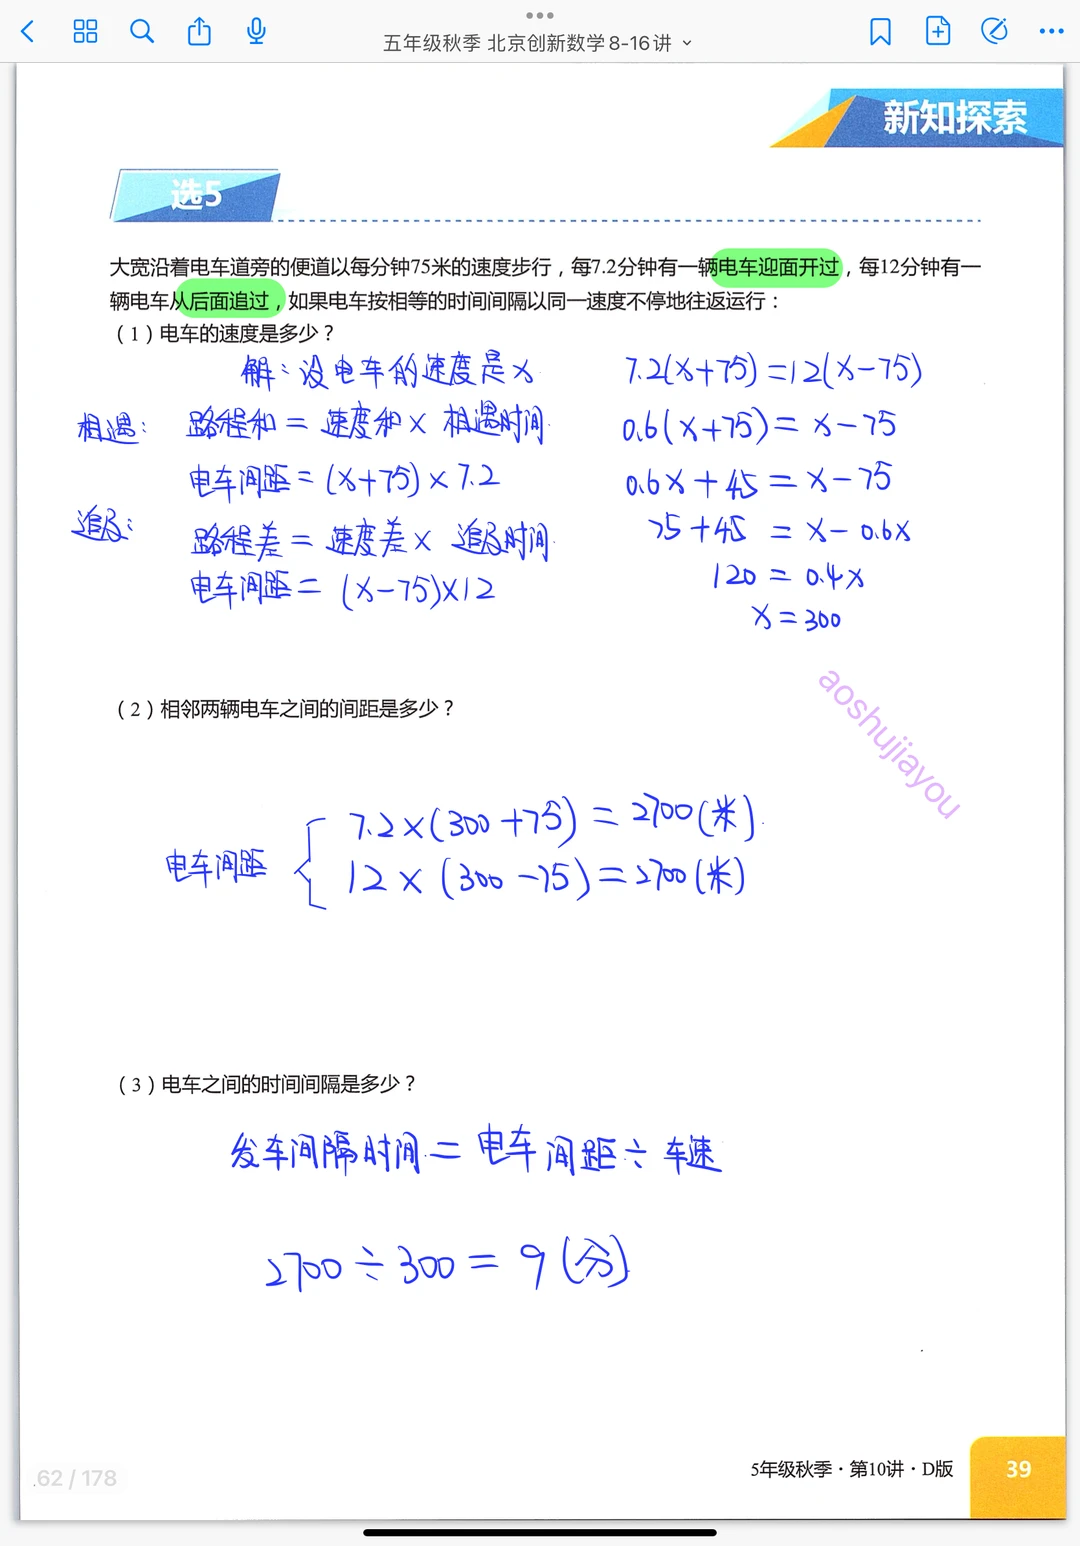 五年级秋季 北京创新数学8-16讲
新知探索
选5
大宽沿着电车道旁的便道以每分钟75米的速度步行，每7.2分钟有一辆电车迎面开过，每12分钟有一
辆电车从后面追过，如果电车按相等的时间间隔以同一速度不停地往返运行：
（1）电车的速度是多少？
解：设电车的速度是x
相遇：路程和＝速度和×相遇时间
电车间距＝(x+75)×7.2
追及：路程差＝速度差×追及时间
电车间距＝(x-75)×12
7.2(x+75)=12(x-75)
0.6(x+75)=x-75
0.6x+45=x-75
75+45=x-0.6x
120=0.4x
x=300
aoshujiayou
（2）相邻两辆电车之间的间距是多少？
电车间距
7.2×(300+75)=2700(米)
12×(300-75)=2700(米)
（3）电车之间的时间间隔是多少？
发车间隔时间＝电车间距÷车速
2700÷300=9(分)
62 / 178
5年级秋季·第10讲·D版
39